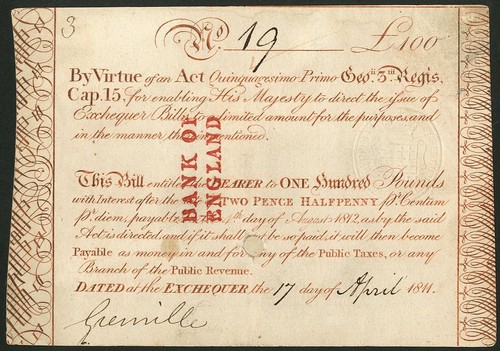 3
No. 19 £100
By Virtue of an Act Quinquagesimo Primo Geoii. 3tii. Regis.
Cap. 15, for enabling His Majesty to direct the issue of
Exchequer Bills, to a limited amount for the purposes and
in the manner therein mentioned.
BANK OF
ENGLAND
This Bill entitles BEARER to ONE Hundred Pounds
with Interest after the TWO PENCE HALFPENNY pr. Centum
pr. diem, payable 4th day of August 1812, as by the said
Act is directed and if it shall not be so paid, it will then become
Payable as money in and for any of the Public Taxes, or any
Branch of the Public Revenue.
DATED at the EXCHEQUER the 17 day of April 1811.
Grenville